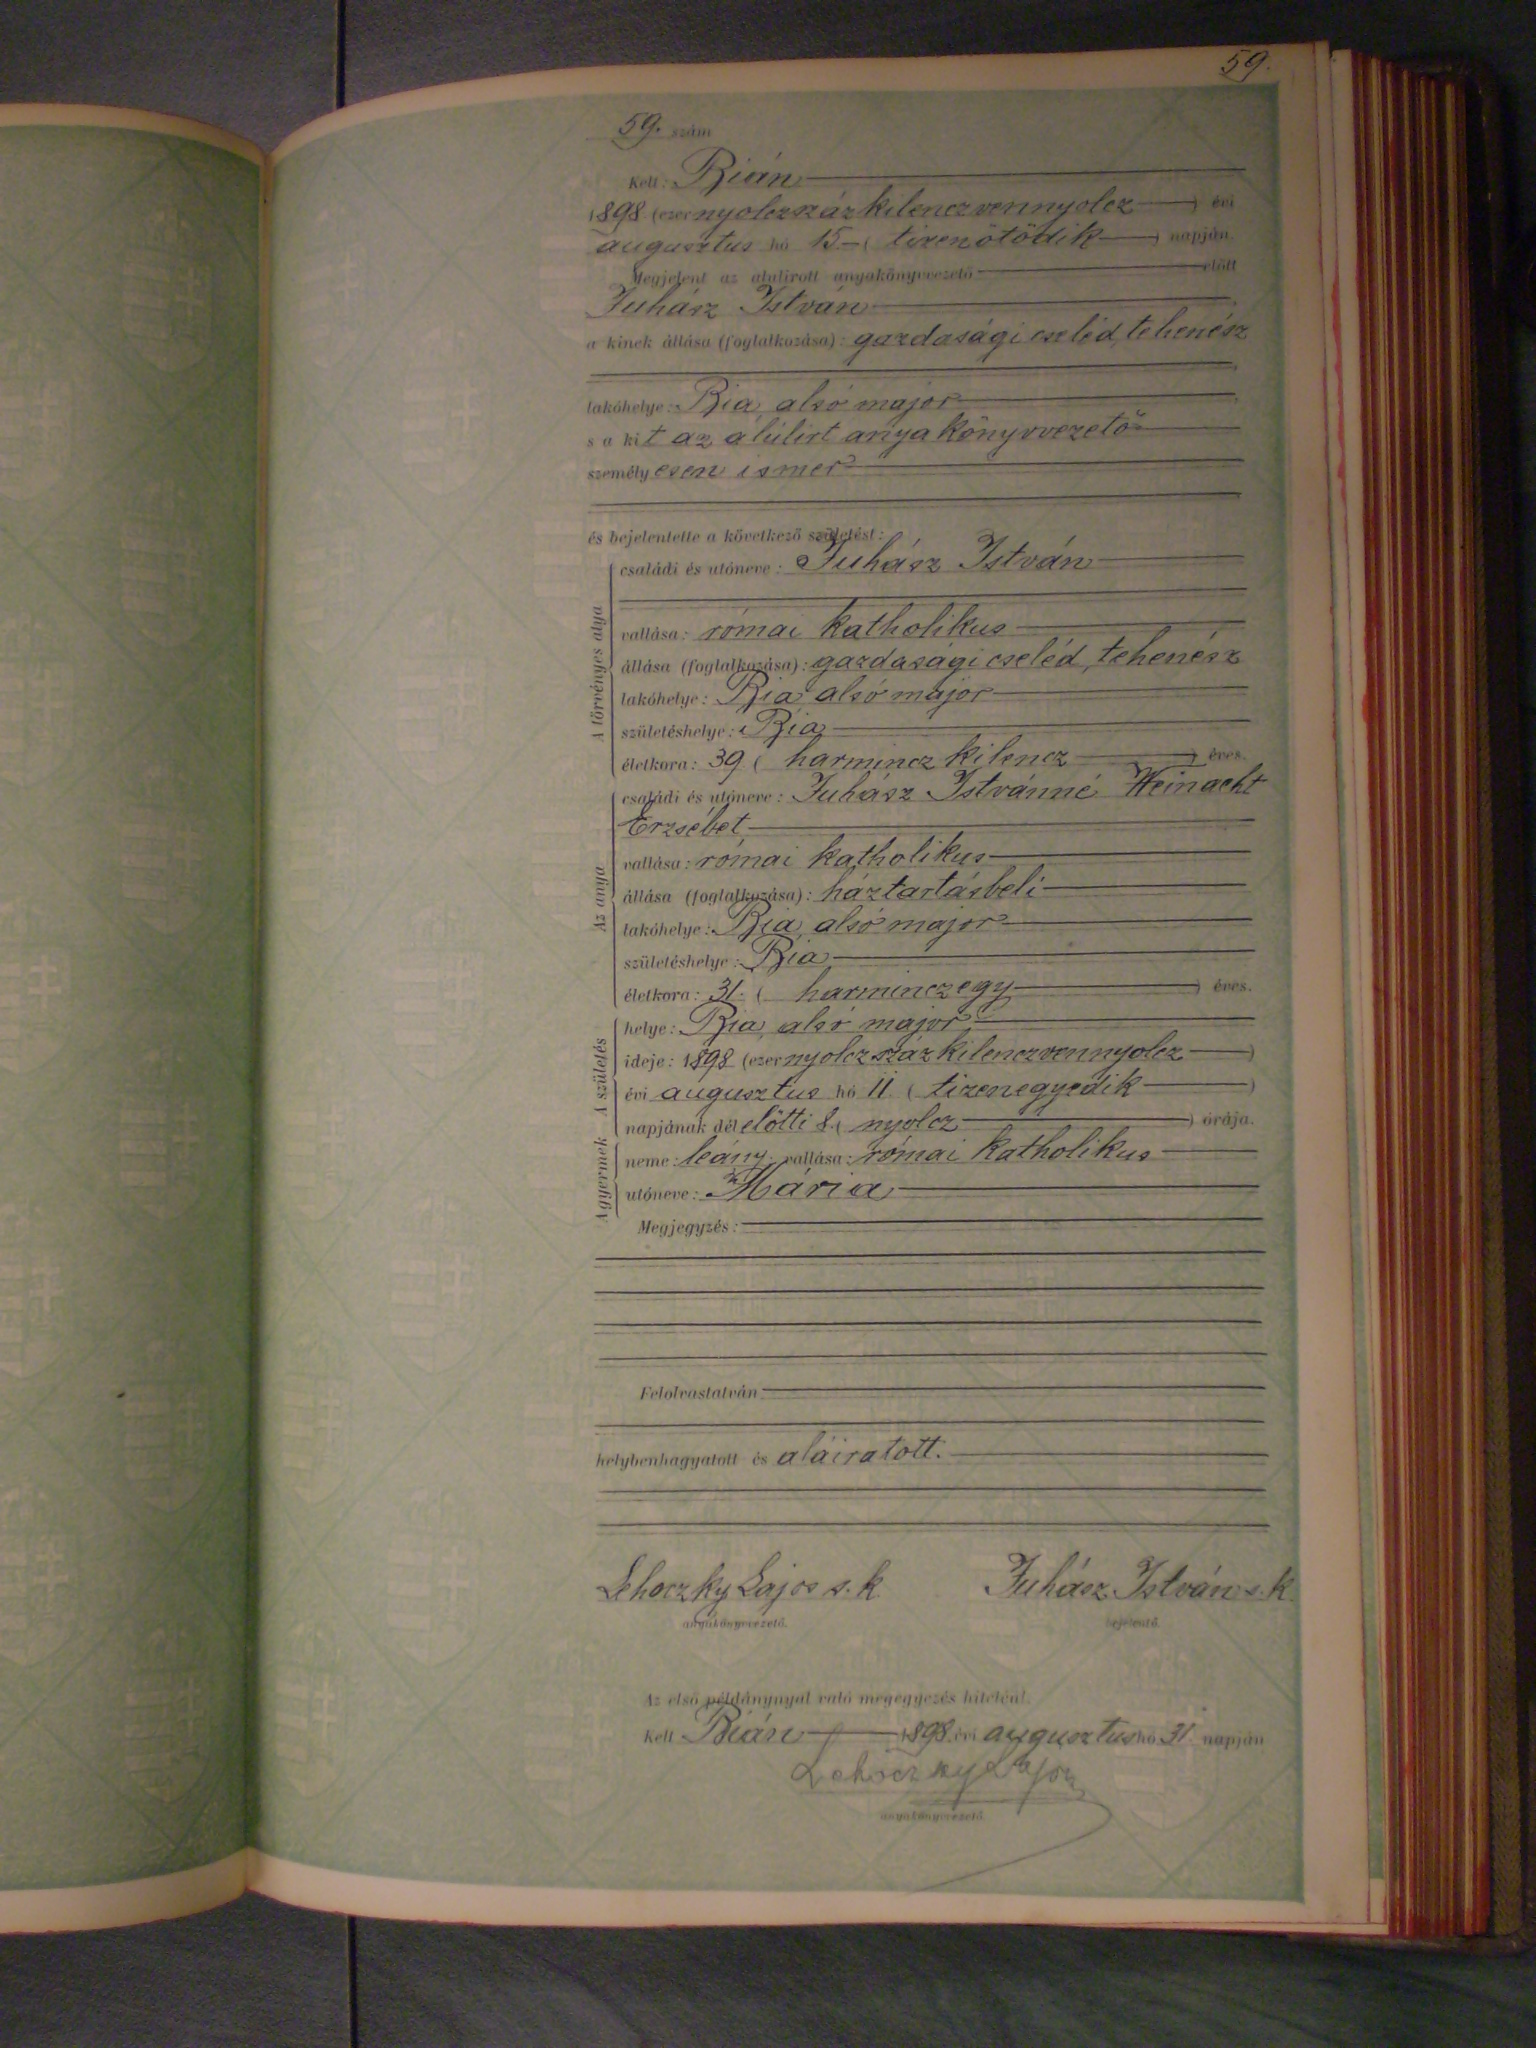 59.
59. szám
Kelt: Bián
1898 (ezernyolczszázkilenczvennyolcz) évi
augusztus hó 15 (tizenötödik) napján.
Megjelent az alulirott anyakönyvvezető előtt
Juhász István
a kinek állása (foglalkozása): gazdasági cseléd, tehenész
lakóhelye: Bia, alsó major
s a kit az alúlirt anyakönyvvezető
személyesen ismer
és bejelentette a következő születést:
A törvényes atya
családi és utóneve: Juhász István
vallása: római katholikus
állása (foglalkozása): gazdasági cseléd, tehenész
lakóhelye: Bia, alsó major
születéshelye: Bia
életkora: 39 (harmincz kilencz) éves.
Az anya
családi és utóneve: Juhász Istvánné Weinacht
Erzsébet
vallása: római katholikus
állása (foglalkozása): háztartásbeli
lakóhelye: Bia, alsó major
születéshelye: Bia
életkora: 31. (harminczegy) éves.
A születés
helye: Bia, alsó major
ideje: 1898 (ezernyolczszázkilenczvennyolcz)
évi augusztus hó 11. (tizenegyedik)
napjának délelőtti 8. (nyolcz) órája.
A gyermek
neme: leány; vallása: római katholikus
utóneve: Mária
Megjegyzés:
Felolvastatván
helybenhagyatott és aláiratott.
Lehoczky Lajos s. k. Juhász István s. k.
anyakönyvvezető. bejelentő.
Az első példánynyal való megegyezés hiteléül.
Kelt Bián 1898. évi augusztus hó 31. napján
Lehoczky Lajos
anyakönyvvezető